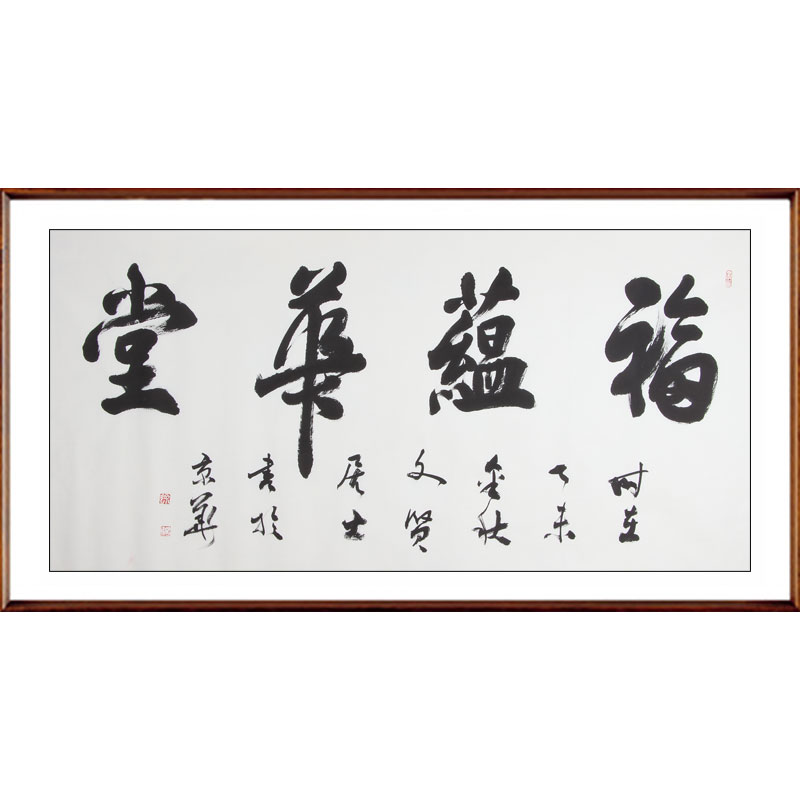 福蘊華堂
时在
乙未
金秋
文贤
居士
書於
京華